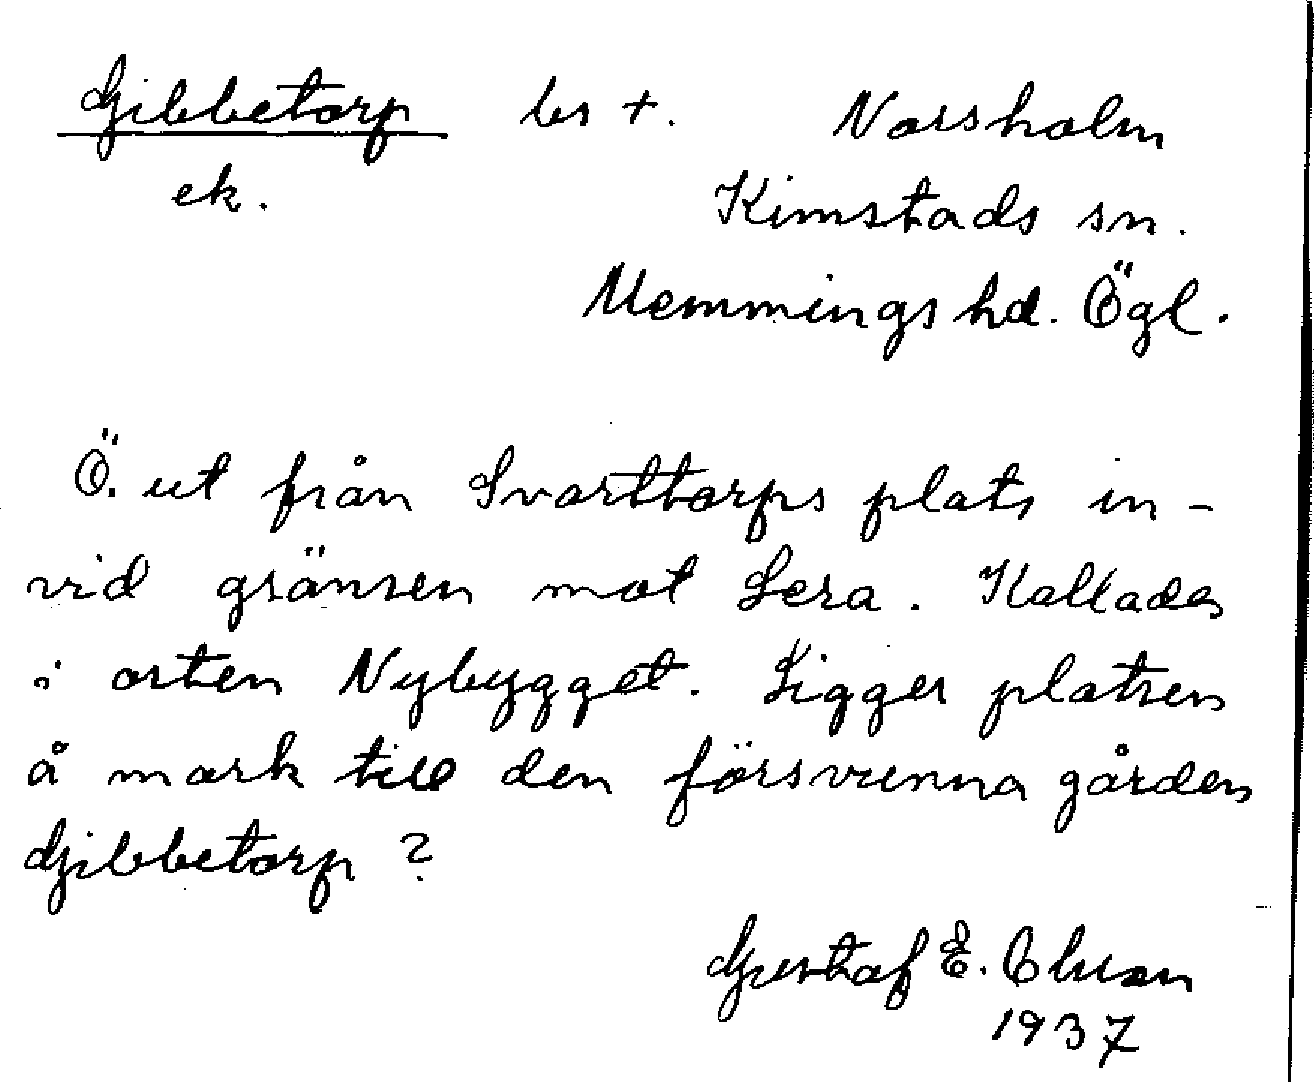 Gibbetorp bs +. Norsholm
ek. Kimstads sn.
Memmings hd. Ögl.
Ö. ut från Svarttorps plats in-
vid gränsen mot Lera. Kallades
i orten Nybygget. Ligger platsen
å mark till den försvunna gården
Gibbetorp?
Gustaf E. Clason
1937